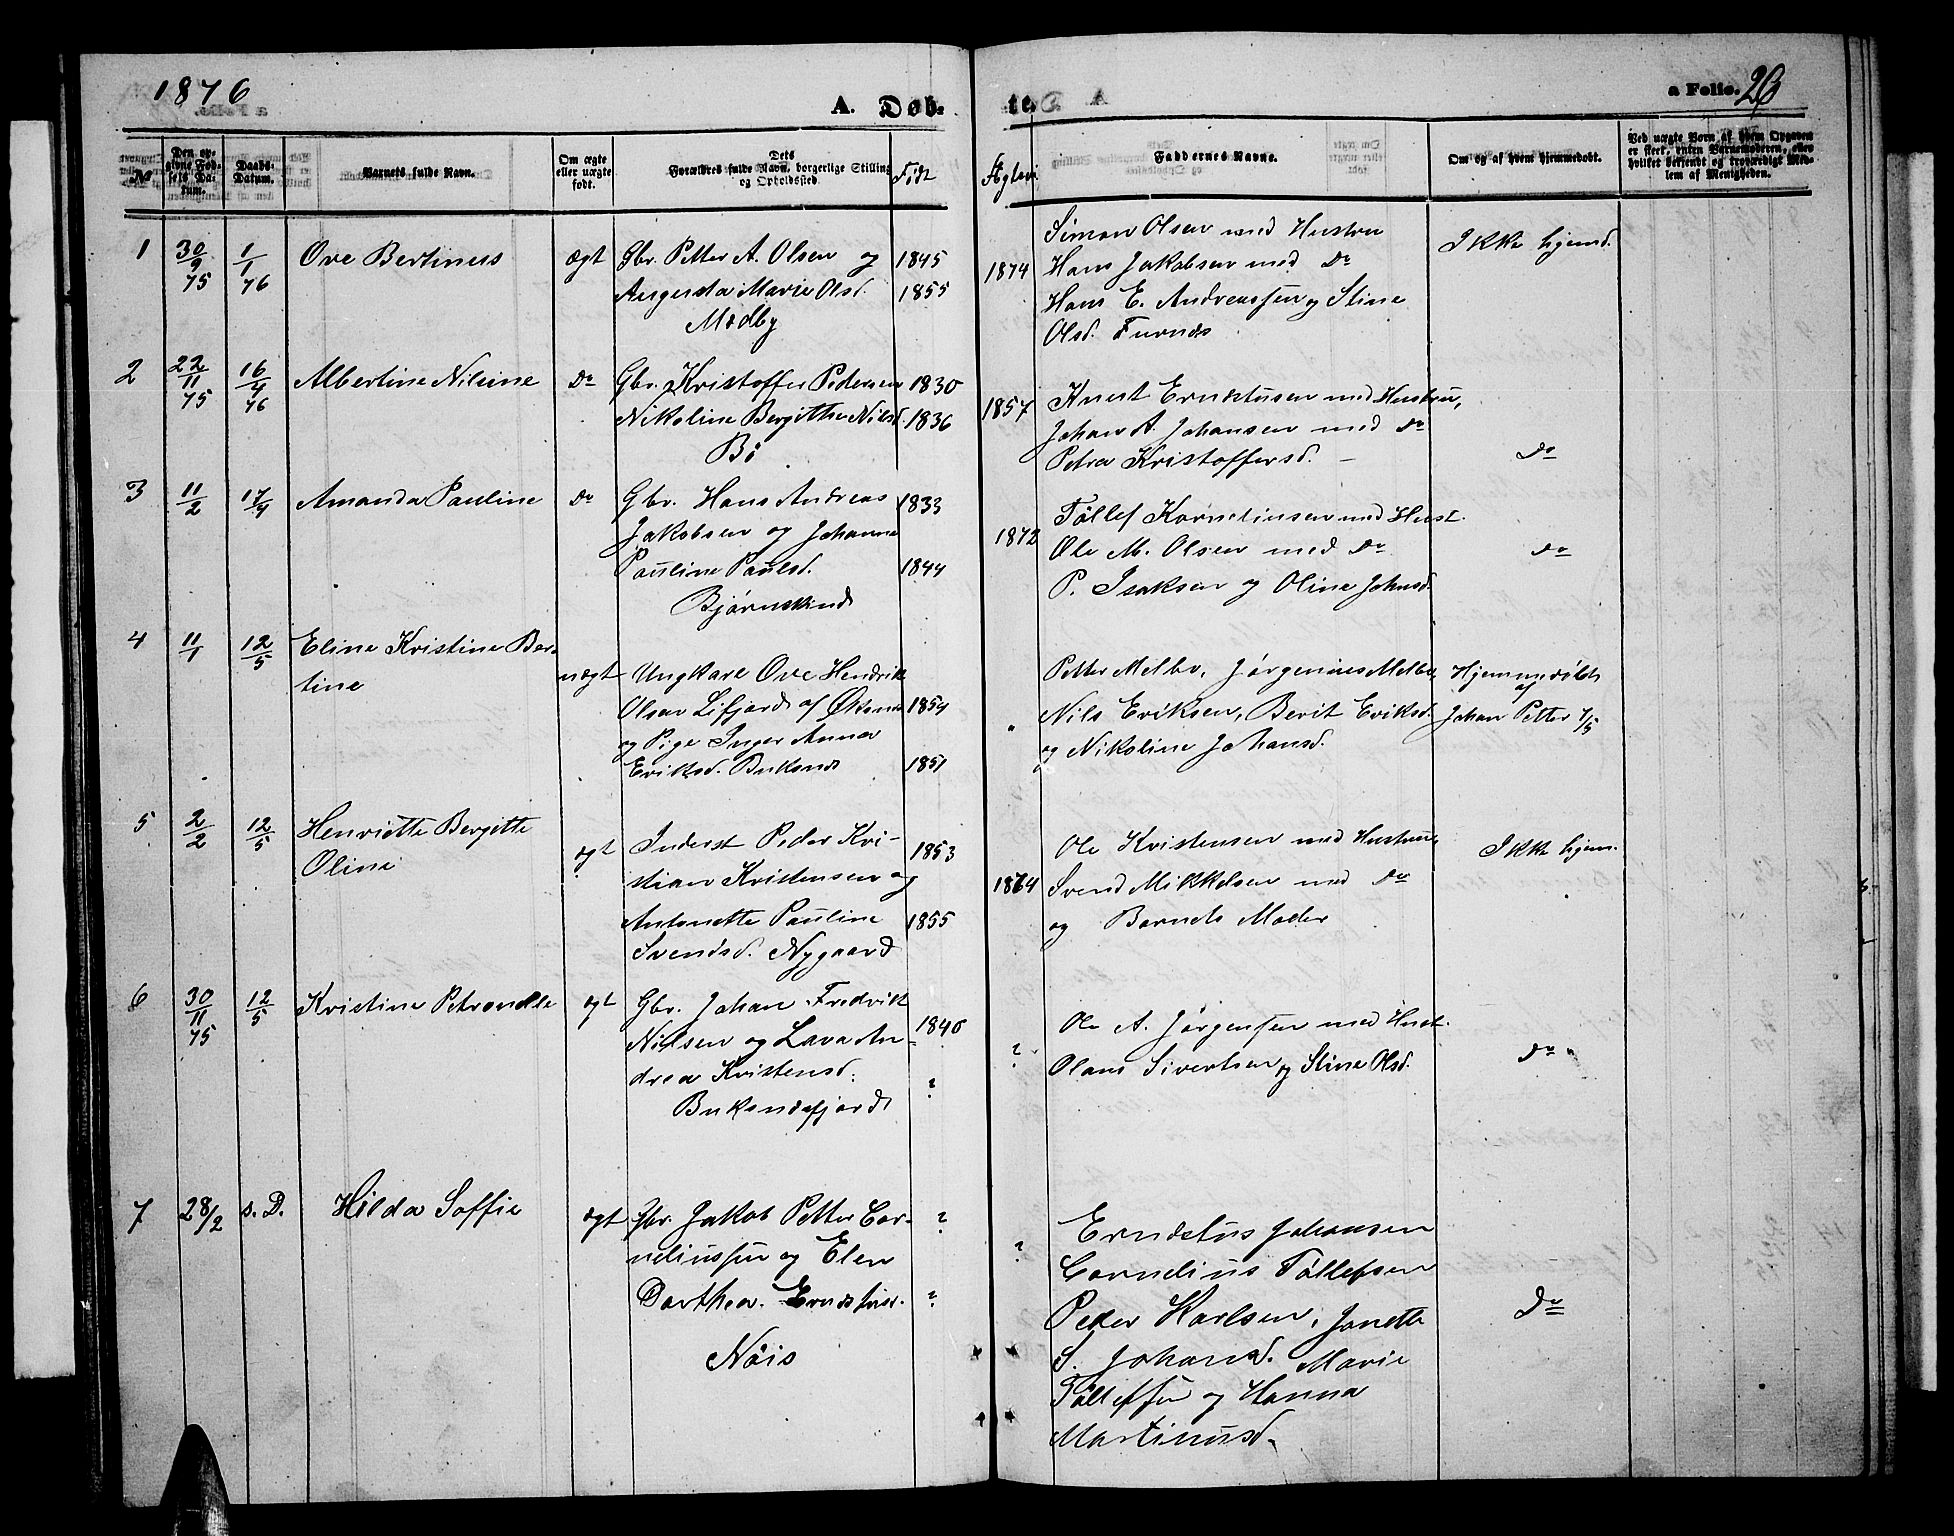 1876
A. Døb-
te.
a Folio. 26
№
Den op-
givne Fød-
sels Da-
tum.
Daabs-
Datum.
Barnets fulde Navn.
Om ægte
eller uægte
født.
Dets
Forældres fulde Navn, borgerlige Stilling
og Opholdssted.
Født
Ægtevi
Faddernes Navne.
Om og af hvem hjemmedøbt.
Ved uægte Børn af hvem Opgaven
er skeet, enten Barnemoderen, eller
hvilket bekjendt og troværdigt Med-
lem af Menigheden.
1
30/9 75
1/1 76
Ove Bertinus
Ægt
Gbr. Petter A. Olsen og
Augusta Marie Olsd.
Medby
1845
1855
1874
Simon Olsen med Hustru
Hans Jakobsen med Do
Hans E. Andreassen og Stine
Olsd. Furnes
Ikke hjemd.
2
22/11 75
16/4 76
Albertine Nilsine
Do
Gbr. Kristoffer Pedersen
Nikoline Bergitthe Nilsd.
Bö
1830
1836
1857
Knut Ernstusen med Hustru,
Johan A. Johansen med Do
Petra Kristoffersd. –
Do
3
11/2
17/4
Amanda Pauline
Do
Gbr. Hans Andreas
Jakobsen og Johanna
Pauline Paulsd.
Bjørnskind
1833
1844
1872
Töllef Korneliusen med Hust.
Ole M. Olsen med Do
P. Isaksen og Oline Johnsd.
Do
4
11/1
12/5
Eline Kristine Ber-
tine
uægt
Ungkarl Ove Hendrik
Olsen Lifjord af Øksnes
og Pige Inger Anna
Eriksd. Buksnes
1854
1851
"
Petter Melbo, Jørgenius Melbo,
Nils Eriksen, Berit Eriksd.
og Nikoline Johansd.
Hjemmedöbt
af
Johan Petter 7/5
5
2/2
12/5
Henriette Bergitte
Oline
ægt
Inderst Peder Kri-
stian Kristensen og
Antonette Pauline
Svendsd. Nygaard
1853
1855
1874
Ole Kristensen med Hustru,
Svend Mikkelsen med Do
og Barnets Moder
Ikke hjem.
6
30/11 75
12/5
Kristine Petrondle
ægt
Gbr. Johan Fredrikt
Nilsen og Lava An-
drea Kristensd.
Buksnesfjord
1840
?
?
Ole A. Jørgensen med Hust.
Olaus Sivertsen og Stine Olsd.
Do
7
28/2
s. D.
Hilda Soffie
ægt
Gbr. Jakob Petter Cor-
neliussen og Elen
Dorthea. Erndstusd.
Nöis
?
?
?
Erndstus Johansen
Cornelius Töllefsen
Peder Karlsen, Janette
S. Johansd. Marie
Töllefsen og Hanna
Martinusd.
Do